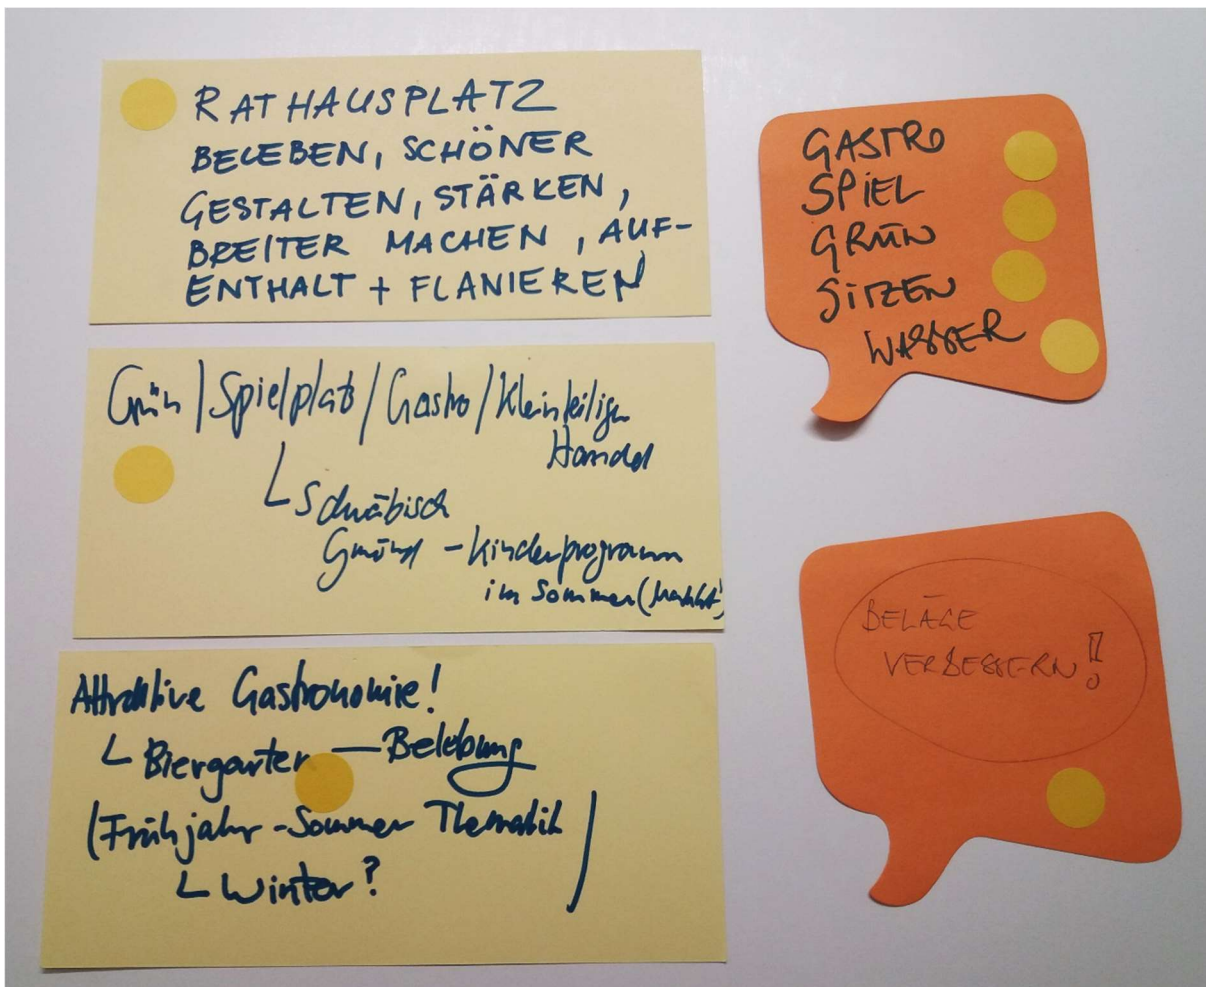 RATHAUSPLATZ
BELEBEN, SCHÖNER
GESTALTEN, STÄRKEN,
BREITER MACHEN, AUF-
ENTHALT + FLANIEREN
Grün / Spielplatz / Gastro / Kleinteiliger
Handel
Schwäbisch
Gmünd - Kinderprogramm
im Sommer
Attraktive Gastronomie!
Biergarten — Belebung
(Frühjahr - Sommer Thematik
Winter? )
GASTRO
SPIEL
GRÜN
SITZEN
WASSER
BELÄGE
VERBESSERN!